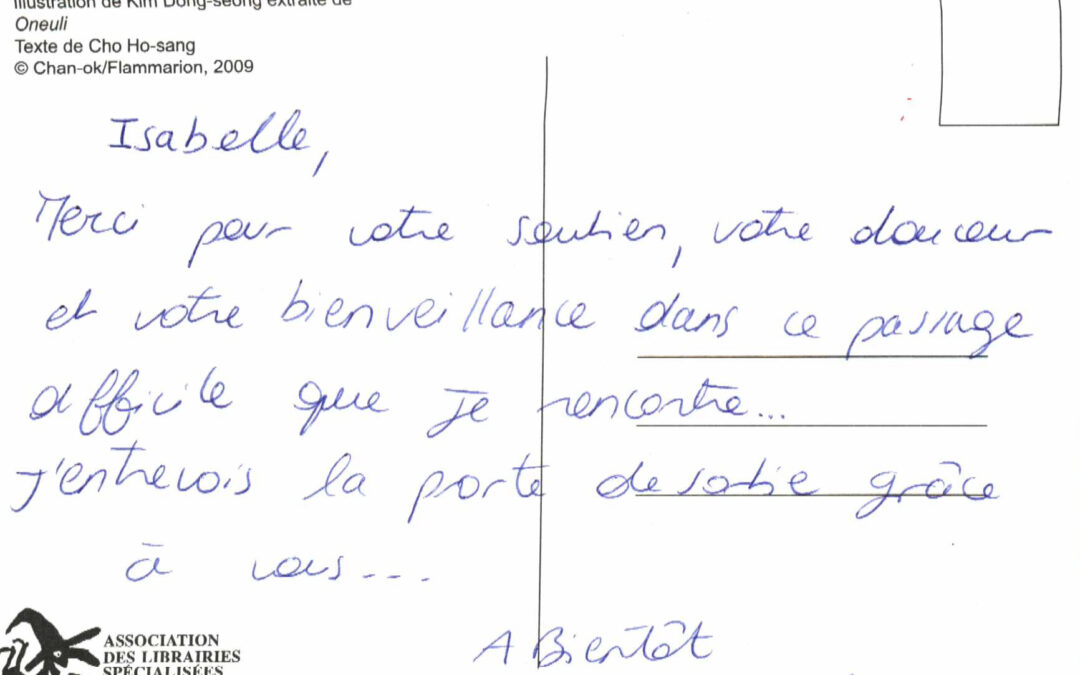 Illustration de Kim Dong-seong extraite de
Oneuli
Texte de Cho Ho-sang
© Chan-ok/Flammarion, 2009
Isabelle,
Merci pour votre soutien, votre douceur
et votre bienveillance dans ce passage
difficile que je rencontre...
J'entrevois la porte de sortie grâce
à vous....
A Bientôt
ASSOCIATION
DES LIBRAIRIES
SPÉCIALISÉES